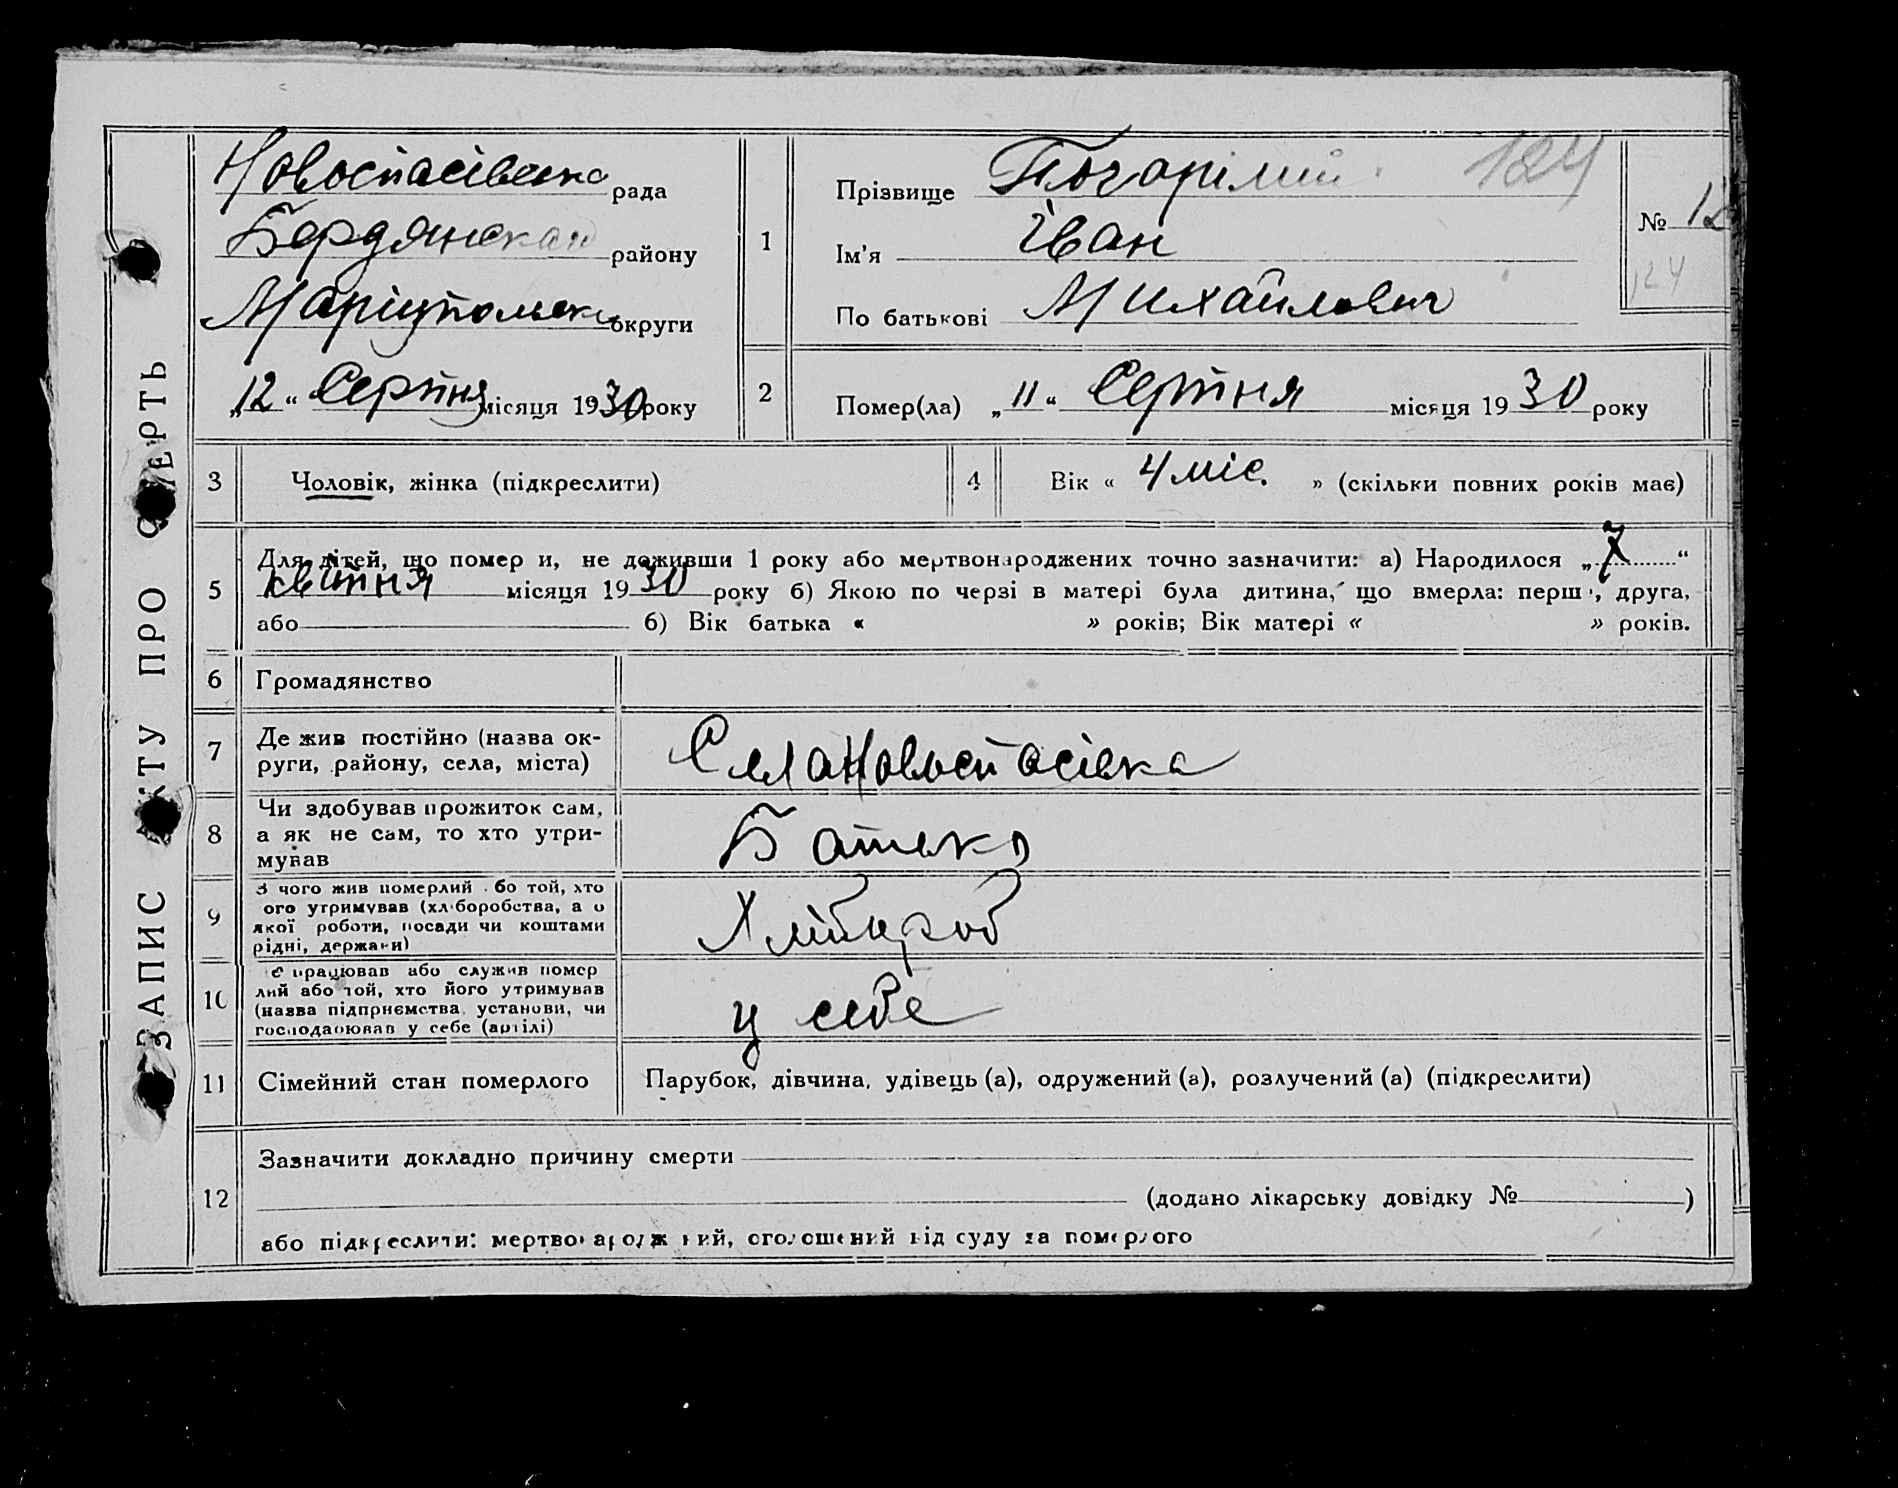 ЗАПИС АКТУ ПРО СМЕРТЬ
Новоспасівська рада
Бердянська району
Маріупольськ округи
„12“ Серпня місяця 1930 року
1
Прізвище 124
Ім'я Іван
По батькові Михайлович
№ 12
124
2
Помер(ла) „11“ Серпня місяця 1930 року
3
Чоловік, жінка (підкреслити)
4
Вік « 4 міс. » (скільки повних років має)
5
Для дітей, що померли, не доживши 1 року або мертвонароджених точно зазначити: а) Народилося „7“
квітня місяця 1930 року б) Якою по черзі в матері була дитина, що вмерла: перша, друга,
або б) Вік батька « » років; Вік матері « » років.
6
Громадянство
7
Де жив постійно (назва ок-
руги, району, села, міста)
Села Новоспасівка
8
Чи здобував прожиток сам,
а як не сам, то хто утри-
мував
Батько
9
З чого жив померлий або той, хто
його утримував (хліборобства, а о
якої роботи, посади чи коштами
рідні, держави)
Хлібороб
10
Де працював або служив помер
лий або той, хто його утримував
(назва підприємства, установи, чи
господарював у себе (артілі)
у себе
11
Сімейний стан померлого
Парубок, дівчина, удівець (а), одружений (а), розлучений (а) (підкреслити)
12
Зазначити докладно причину смерти
(додано лікарську довідку № )
або підкреслити: мертвонароджений, оголошений від суду за померлого